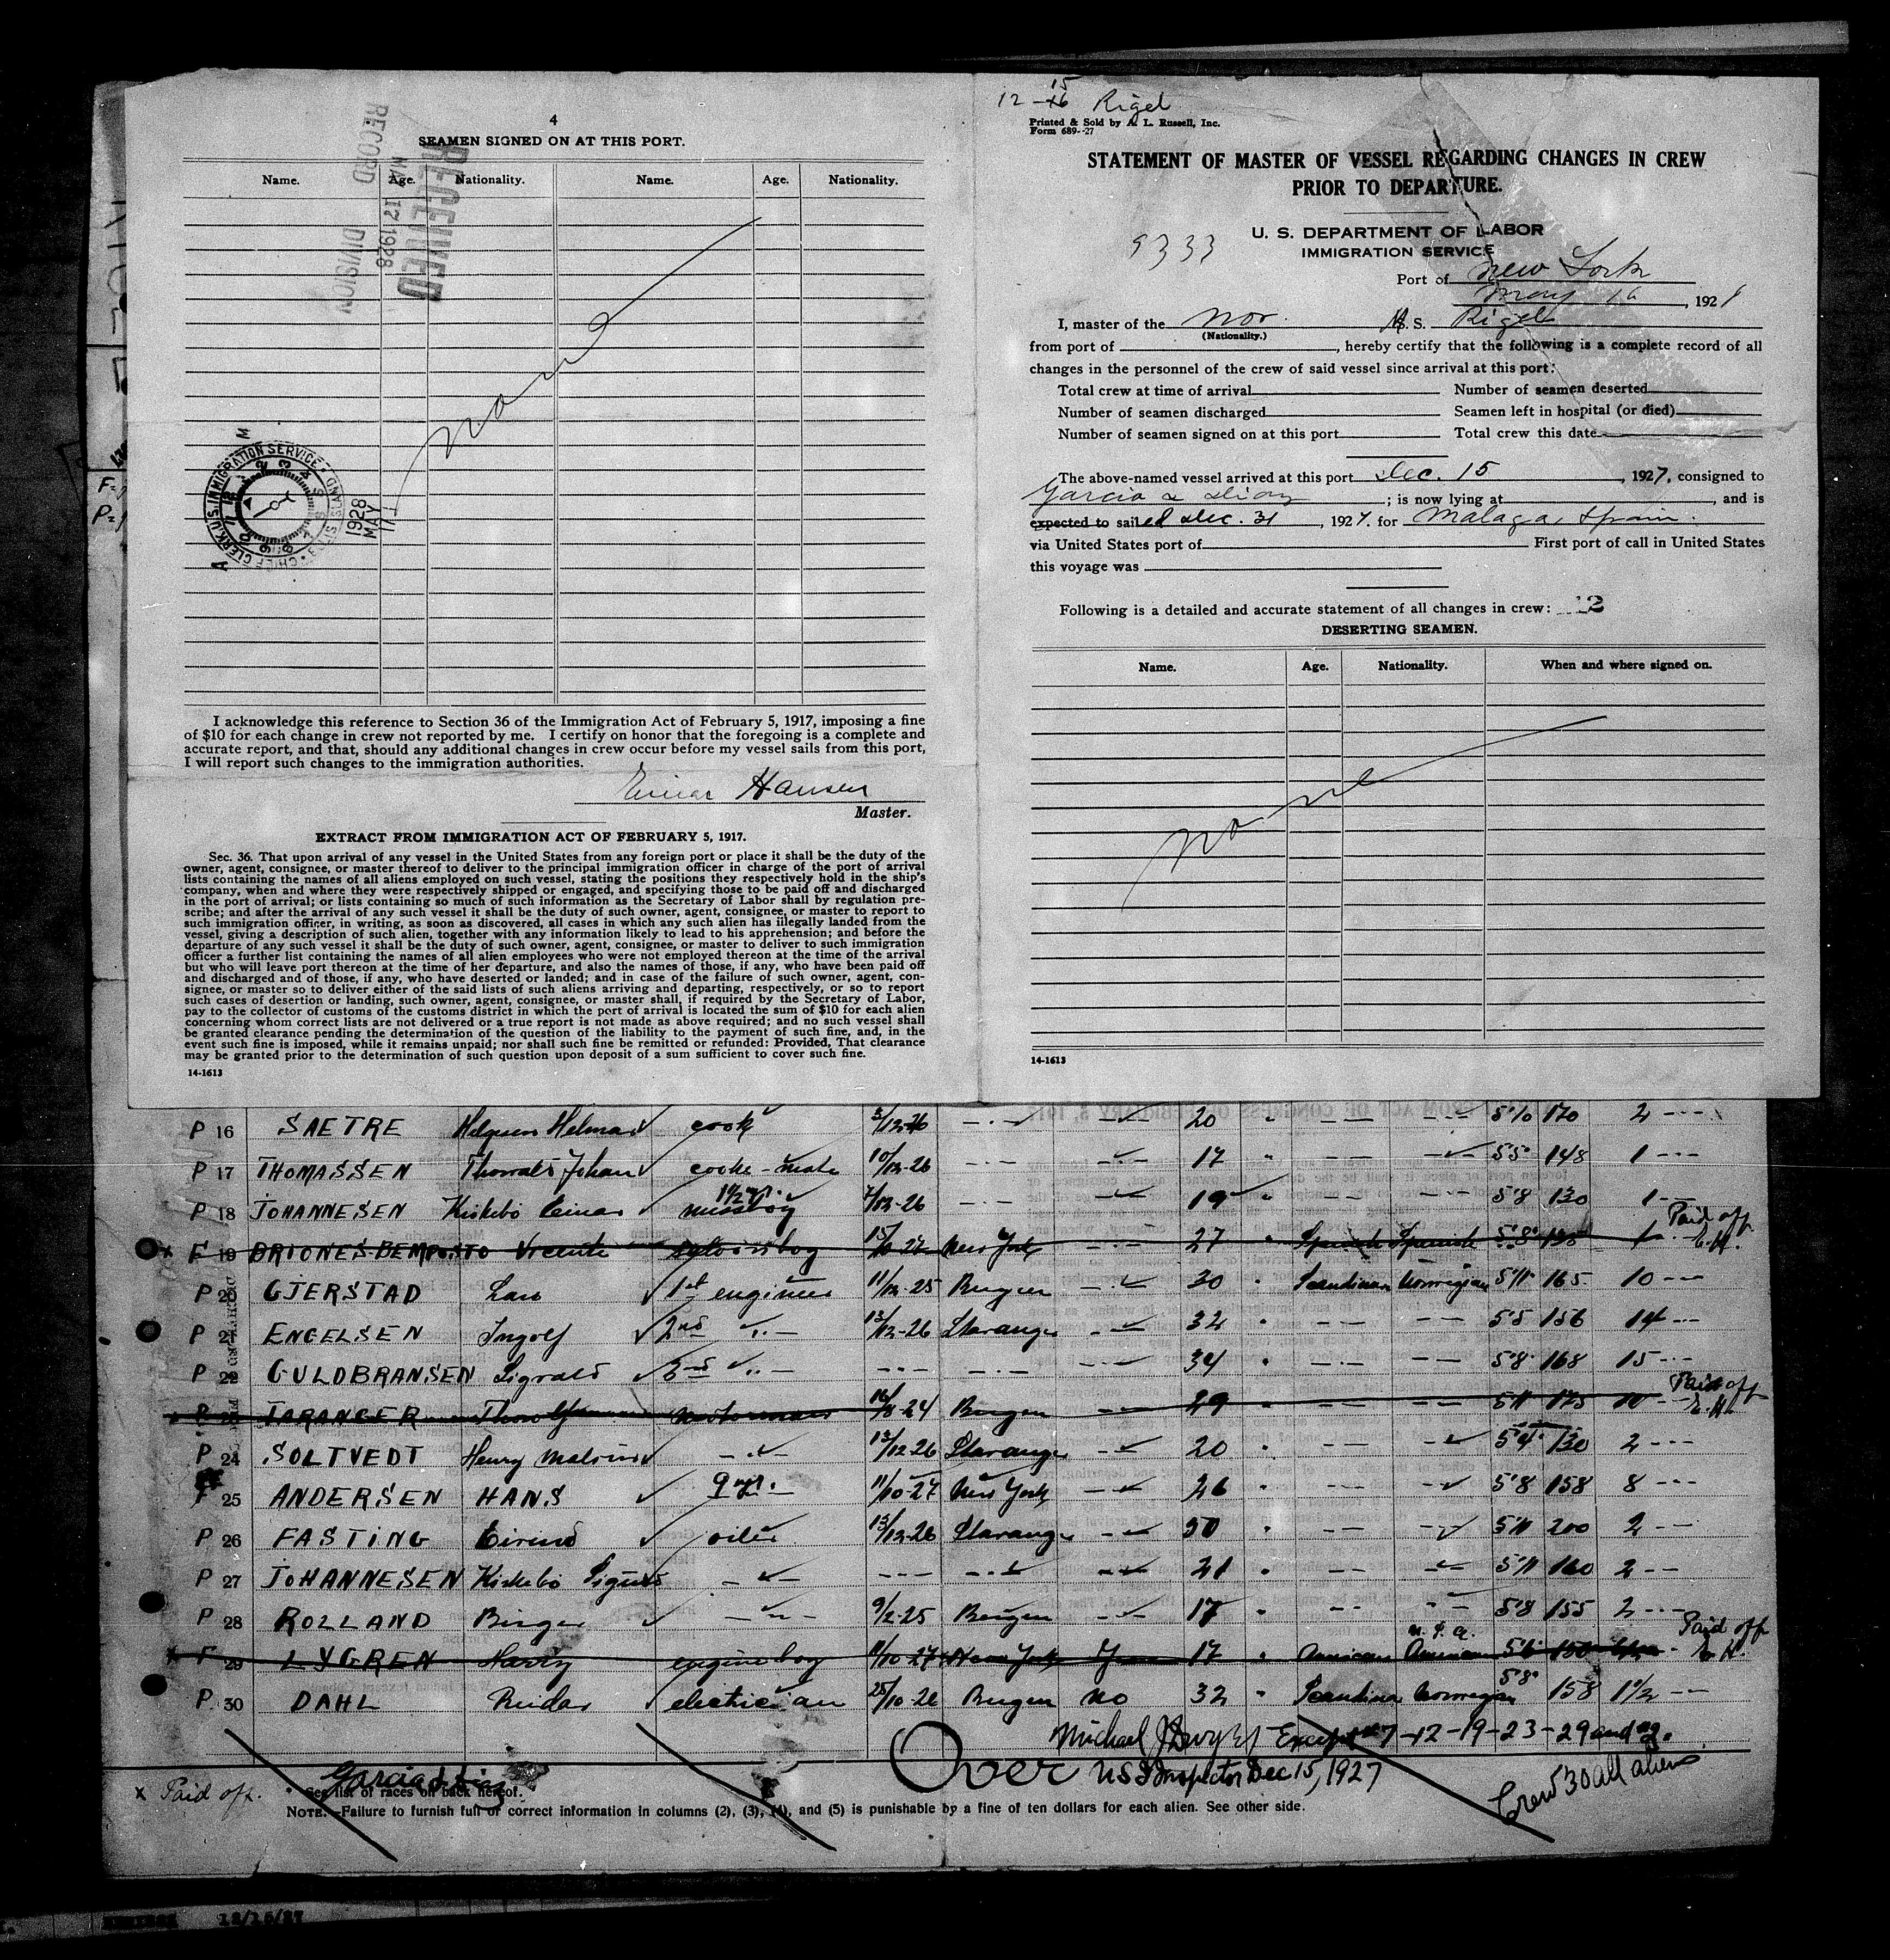 4
SEAMEN SIGNED ON AT THIS PORT.
Name. Age. Nationality. Name. Age. Nationality.
RECEIVED
MAY 17 1928
RECORD DIVISION
None
CHIEF CLERK U.S. IMMIGRATION SERVICE
1928 MAY 17
I acknowledge this reference to Section 36 of the Immigration Act of February 5, 1917, imposing a fine
of $10 for each change in crew not reported by me. I certify on honor that the foregoing is a complete and
accurate report, and that, should any additional changes in crew occur before my vessel sails from this port,
I will report such changes to the immigration authorities.
Einar Hansen
Master.
EXTRACT FROM IMMIGRATION ACT OF FEBRUARY 5, 1917.
Sec. 36. That upon arrival of any vessel in the United States from any foreign port or place it shall be the duty of the
owner, agent, consignee, or master thereof to deliver to the principal immigration officer in charge of the port of arrival
lists containing the names of all aliens employed on such vessel, stating the positions they respectively hold in the ship's
company, when and where they were respectively shipped or engaged, and specifying those to be paid off and discharged
in the port of arrival; or lists containing so much of such information as the Secretary of Labor shall by regulation pre-
scribe; and after the arrival of any such vessel it shall be the duty of such owner, agent, consignee, or master to report to
such immigration officer, in writing, as soon as discovered, all cases in which any such alien has illegally landed from the
vessel, giving a description of such alien, together with any information likely to lead to his apprehension; and before the
departure of any such vessel it shall be the duty of such owner, agent, consignee, or master to deliver to such immigration
officer a further list containing the names of all alien employees who were not employed thereon at the time of the arrival
but who will leave port thereon at the time of her departure, and also the names of those, if any, who have been paid off
and discharged and of those, if any, who have deserted or landed; and in case of the failure of such owner, agent, con-
signee, or master so to deliver either of the said lists of such aliens arriving and departing, respectively, or so to report
such cases of desertion or landing, such owner, agent, consignee, or master shall, if required by the Secretary of Labor,
pay to the collector of customs of the customs district in which the port of arrival is located the sum of $10 for each alien
concerning whom correct lists are not delivered or a true report is not made as above required; and no such vessel shall
be granted clearance pending the determination of the question of the liability to the payment of such fine, and, in the
event such fine is imposed, while it remains unpaid; nor shall such fine be remitted or refunded: Provided, That clearance
may be granted prior to the determination of such question upon deposit of a sum sufficient to cover such fine.
14-1613
12-15 Rigel
Printed & Sold by A. L. Russell, Inc.
Form 689--27
STATEMENT OF MASTER OF VESSEL REGARDING CHANGES IN CREW
PRIOR TO DEPARTURE.
U. S. DEPARTMENT OF LABOR
IMMIGRATION SERVICE
9333
Port of New York
May 16, 192
I, master of the Nor. S. Rigel
(Nationality.)
from port of , hereby certify that the following is a complete record of all
changes in the personnel of the crew of said vessel since arrival at this port:
Total crew at time of arrival Number of seamen deserted
Number of seamen discharged Seamen left in hospital (or died)
Number of seamen signed on at this port Total crew this date
The above-named vessel arrived at this port Dec. 15, 1927, consigned to
Garcia & Diaz ; is now lying at , and is
expected to sailed Dec. 31, 1927. for Malaga, Spain.
via United States port of First port of call in United States
this voyage was
Following is a detailed and accurate statement of all changes in crew: 12
DESERTING SEAMEN.
Name. Age. Nationality. When and where signed on.
None
14-1613
P 16 SAETRE Helmar cook 20 5'10 170 2
P 17 THOMASSEN Johan cooks-mate 10/12-26 17 5'5 148 1
P 18 JOHANNESEN Kirkebö Einar messboy 7/12-26 19 5'8 130 1
F 19 BRIONES BEMPOSTO Vicente New York 27 Spanish Spanish 5'8 1 Paid off E.H.
P 20 GJERSTAD Lars 1st engineer 11/12-25 Bergen 30 Scandinav Norwegian 5'11 165 10
P 21 ENGELSEN Ingolf 2nd 13/12-26 Stavanger 32 5'5 156 14
P 22 GULDBRANSEN Sigvald 3rd 34 5'8 168 15
P 23 TARANGER Thorolf motorman 16/8-24 Bergen 29 5'11 175 10 Paid off E.H.
P 24 SOLTVEDT Henry 13/12-26 Stavanger 20 5'4 130 2
25 ANDERSEN HANS 11/10-27 New York 26 5'8 158 8
P 26 FASTING Eivind oiler 13/12-26 Stavanger 50 5'11 200 2
P 27 JOHANNESEN Kirkebö Sigurd 21 5'11 160 2
P 28 ROLLAND Birger 9/2-25 Bergen 17 5'8 155 2
F 29 LYGREN Harry engineboy 11/10-27 New York 17 American American U.S.A. 5'6 150 Paid off E.H.
P 30 DAHL Reidar electrician 25/10-26 Bergen no 32 Scandinav Norwegian 5'8 158 1½
Michael J Dwyer Except #7-12-19-23-29 and
Over US Inspector Dec 15, 1927
Crew 30 all aliens
x Paid off. Garcia & Diaz
* See list of races on back hereof.
NOTE.—Failure to furnish full or correct information in columns (2), (3), (4), and (5) is punishable by a fine of ten dollars for each alien. See other side.